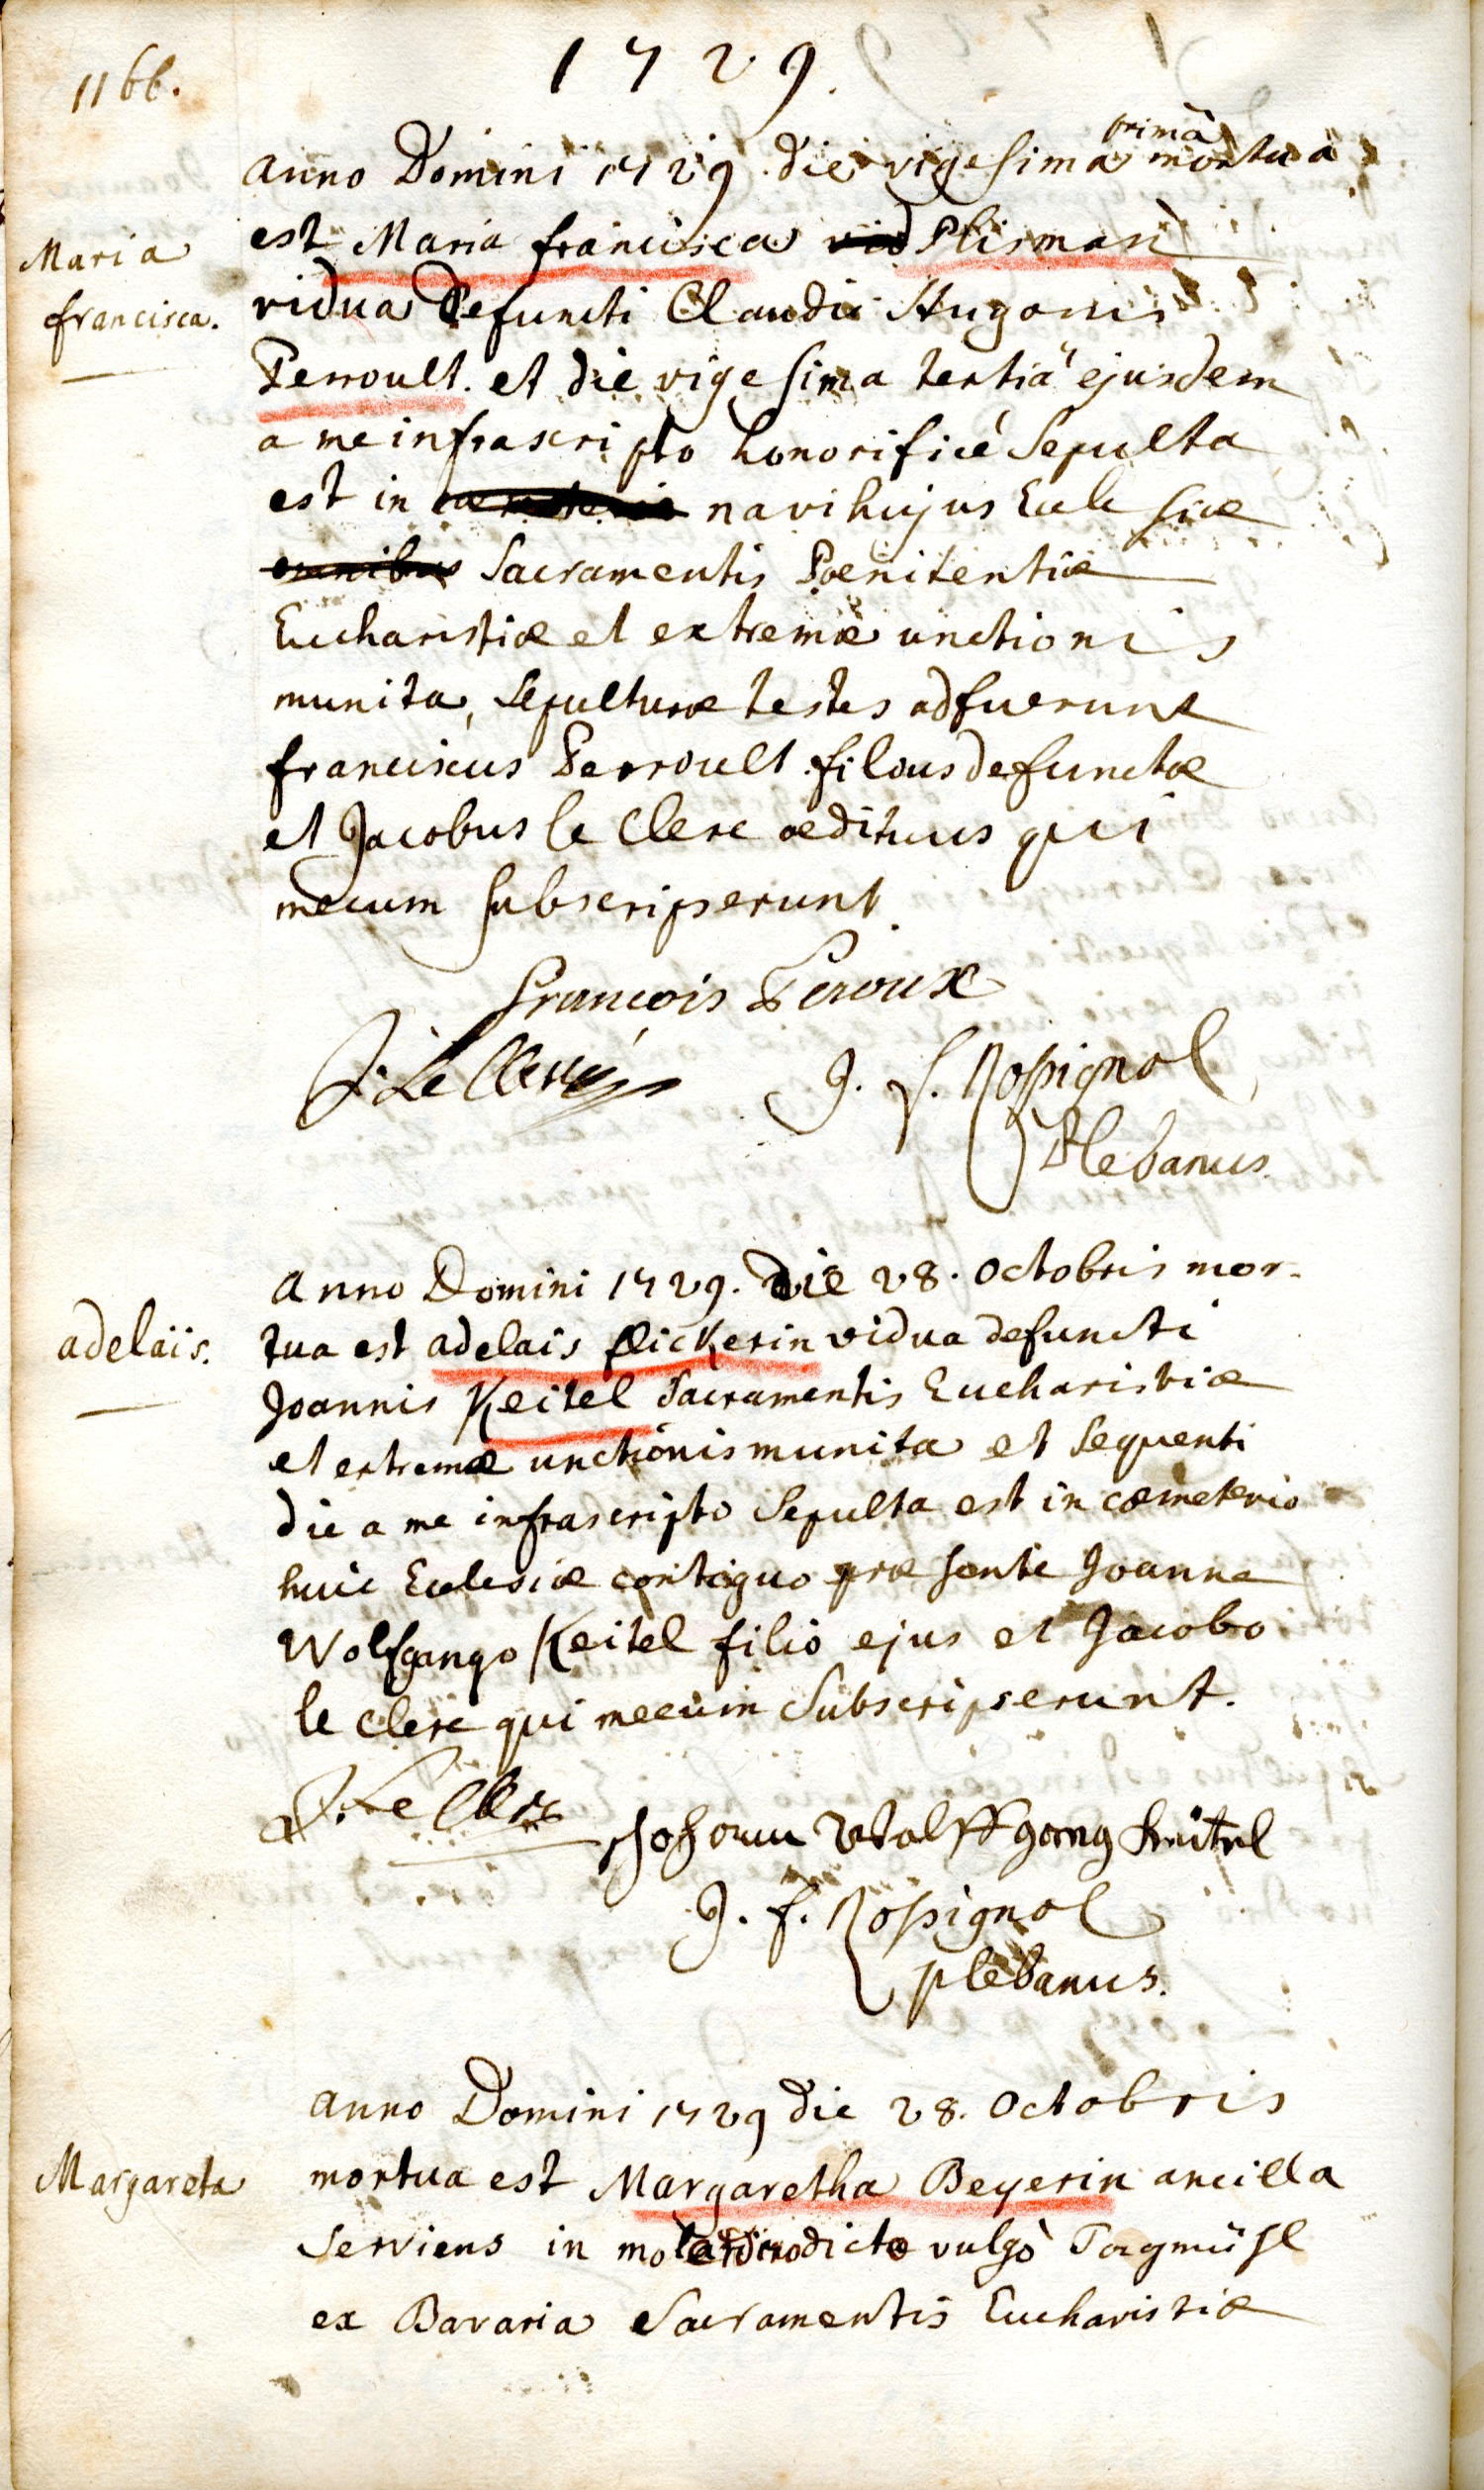 1166.
1729.
anno Domini 1729. die vigesima primâ mortua
est Maria francisca Plismasi
Maria
francisca.
vidua defuncti Claudii Hugonis
Perroult. et die vigesima tertiâ ejusdem
a me infrascripto honorificé Sepulta
est in navi hujus Ecclesiæ
omnibus Sacramentis Pœnitentiæ
Eucharistiæ et extremæ unctionis
munita, Sepulturæ testes adfuerunt
franciscus Perroult filius defunctæ
et Jacobus le Clerc ædituus qui
mecum subscripserunt
francois Peroux
J. Le Clerc
J. f. Rossignol
Plebanus.
anno Domini 1729. die 28. octobris mor-
adelais.
tua est adelais flickerin vidua defuncti
Joannis Keitel Sacramentis Eucharistiæ
et extremæ unctionis munita et sequenti
die a me infrascripto Sepulta est in cœmeterio
huic Ecclesiæ contiguo præsente Joanne
Wolfgango Keitel filio ejus et Jacobo
le clerc qui mecum subscripserunt.
J. Le Clerc
Johann Wolffgang Keitel
J. f. Rossignol
plebanus.
anno Domini 1729 die 28. octobris
Margareta
mortua est Margaretha Beyerin ancilla
serviens in mola dicta vulgò
ex Bavaria Sacramentis Eucharistiæ